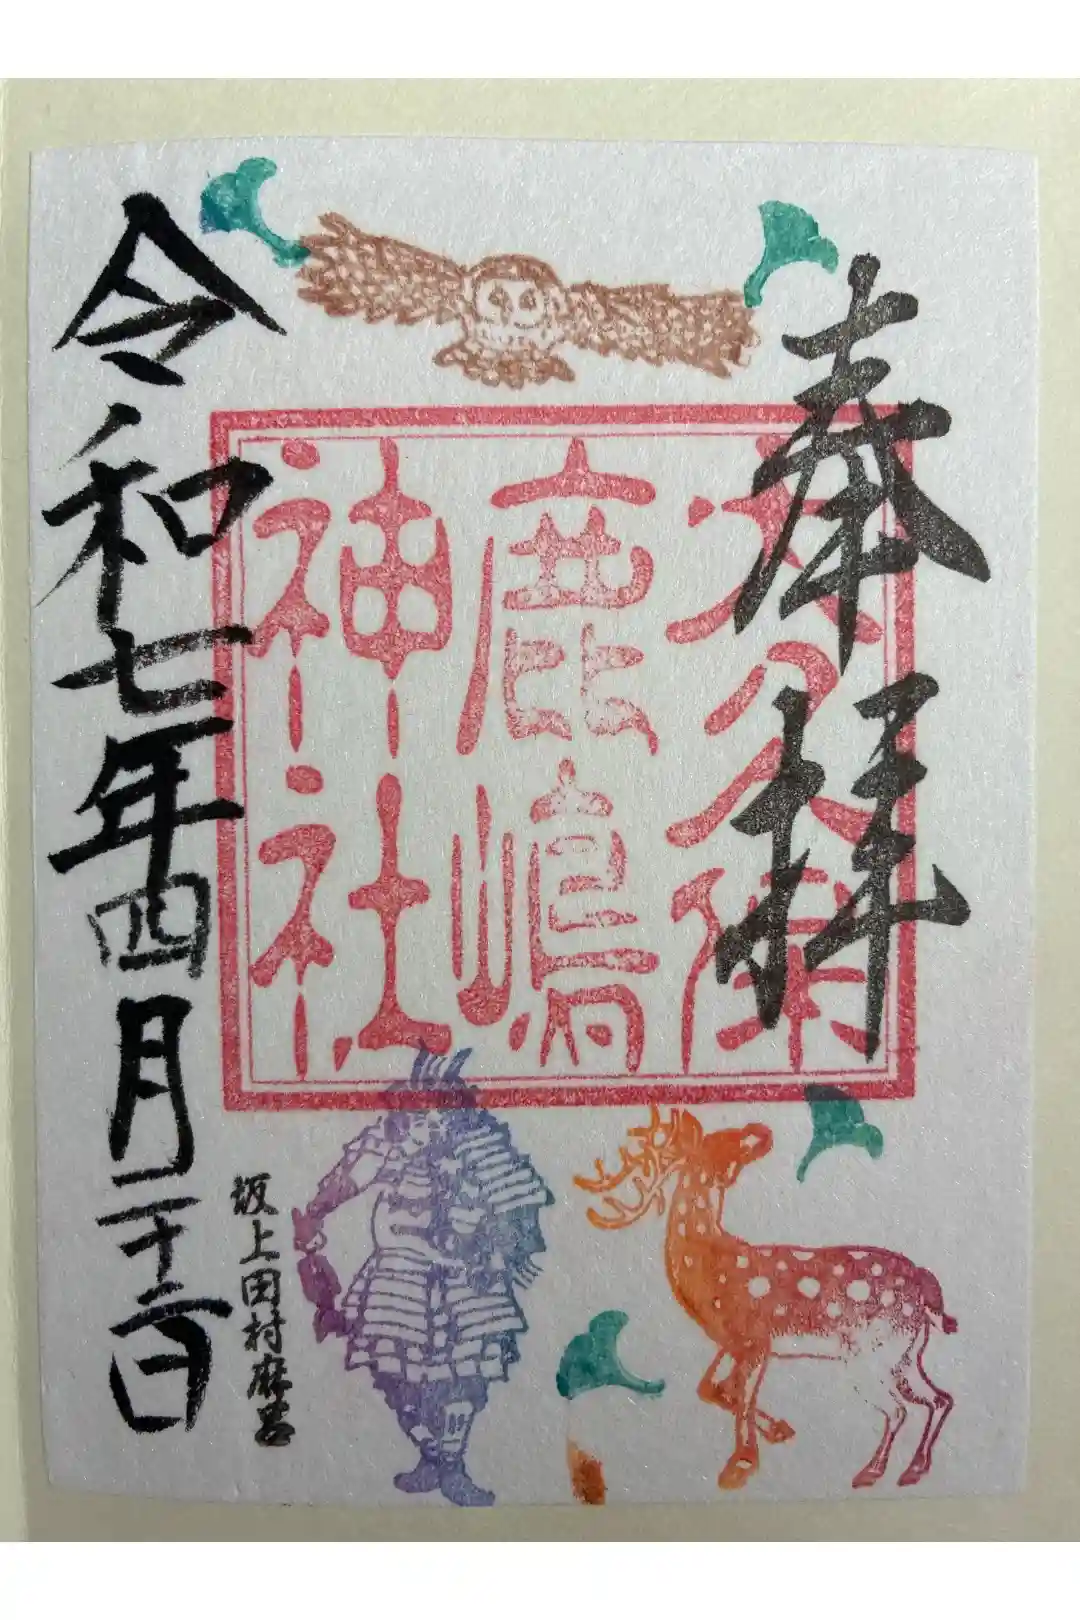 奉拝
大久保
鹿嶋
神社
坂上田村麻呂
令和七年四月二十二日